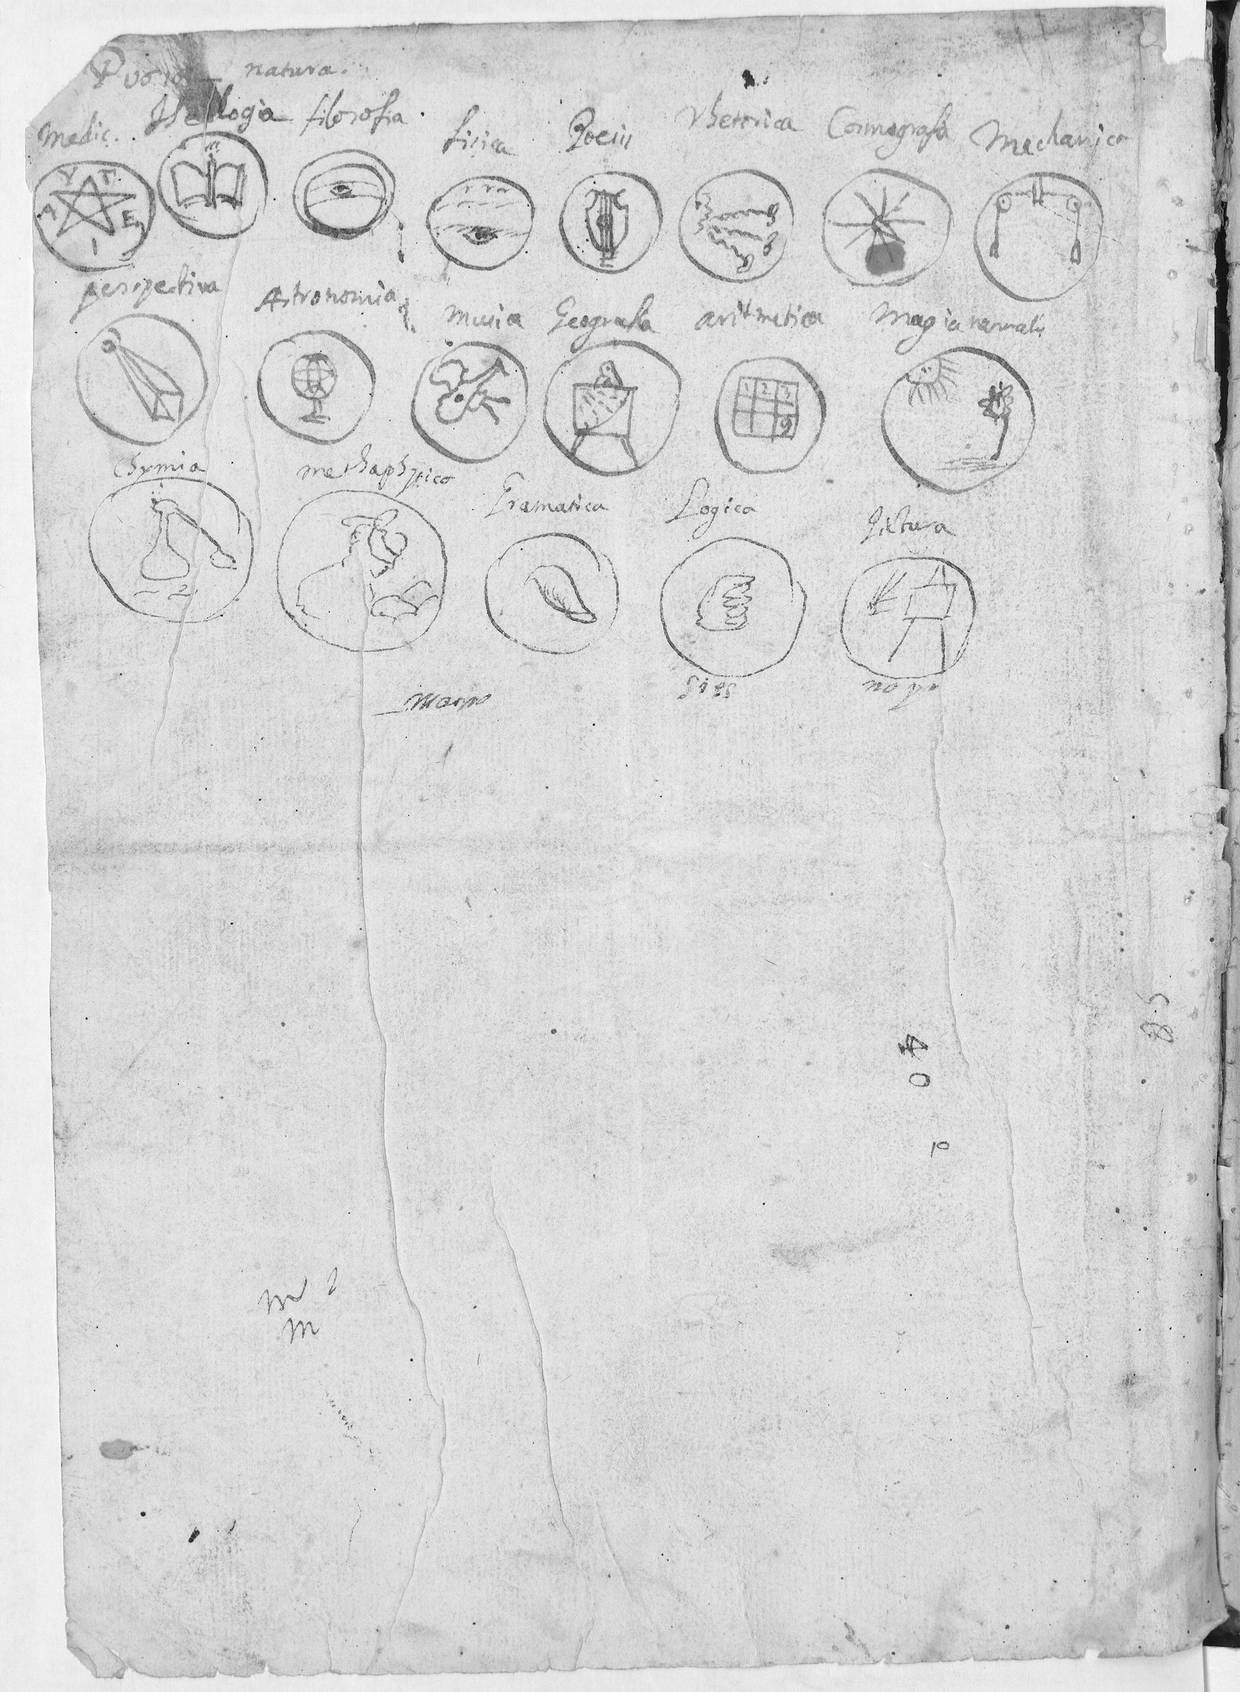 natura.
Medic. Theologia filosofia.
fisica Poesis Rhetorica Cosmografa Mechanica
Y T
A E
I
perspectiva Astronomia musica Geografa aritmetica Magia naturalis
1 2 3
9
Chymia methaphysico Gramatica Logica pictura
2
40
P
m
m